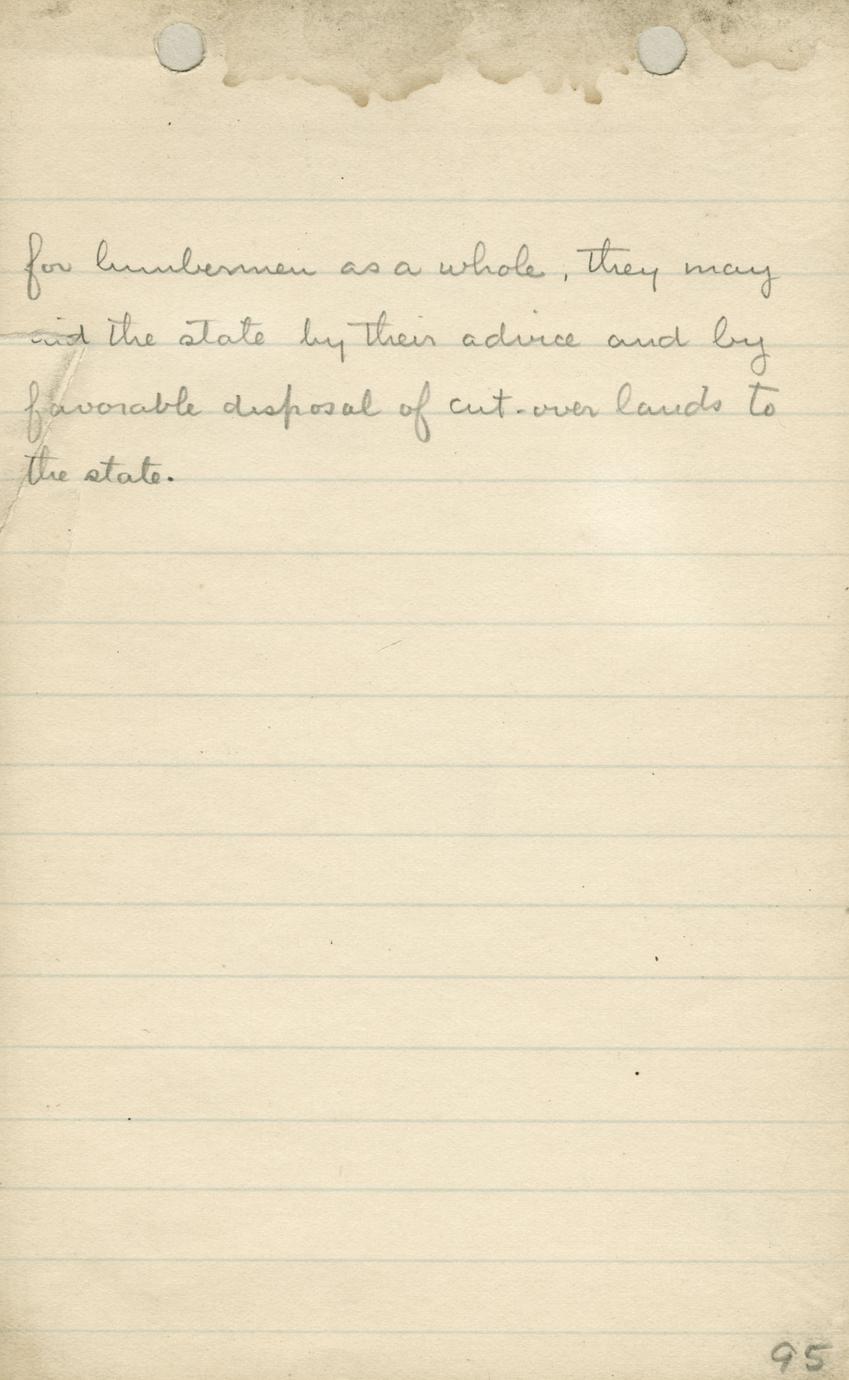 for lumbermen as a whole, they may
aid the state by their advice and by
favorable disposal of cut-over lands to
the state.
95